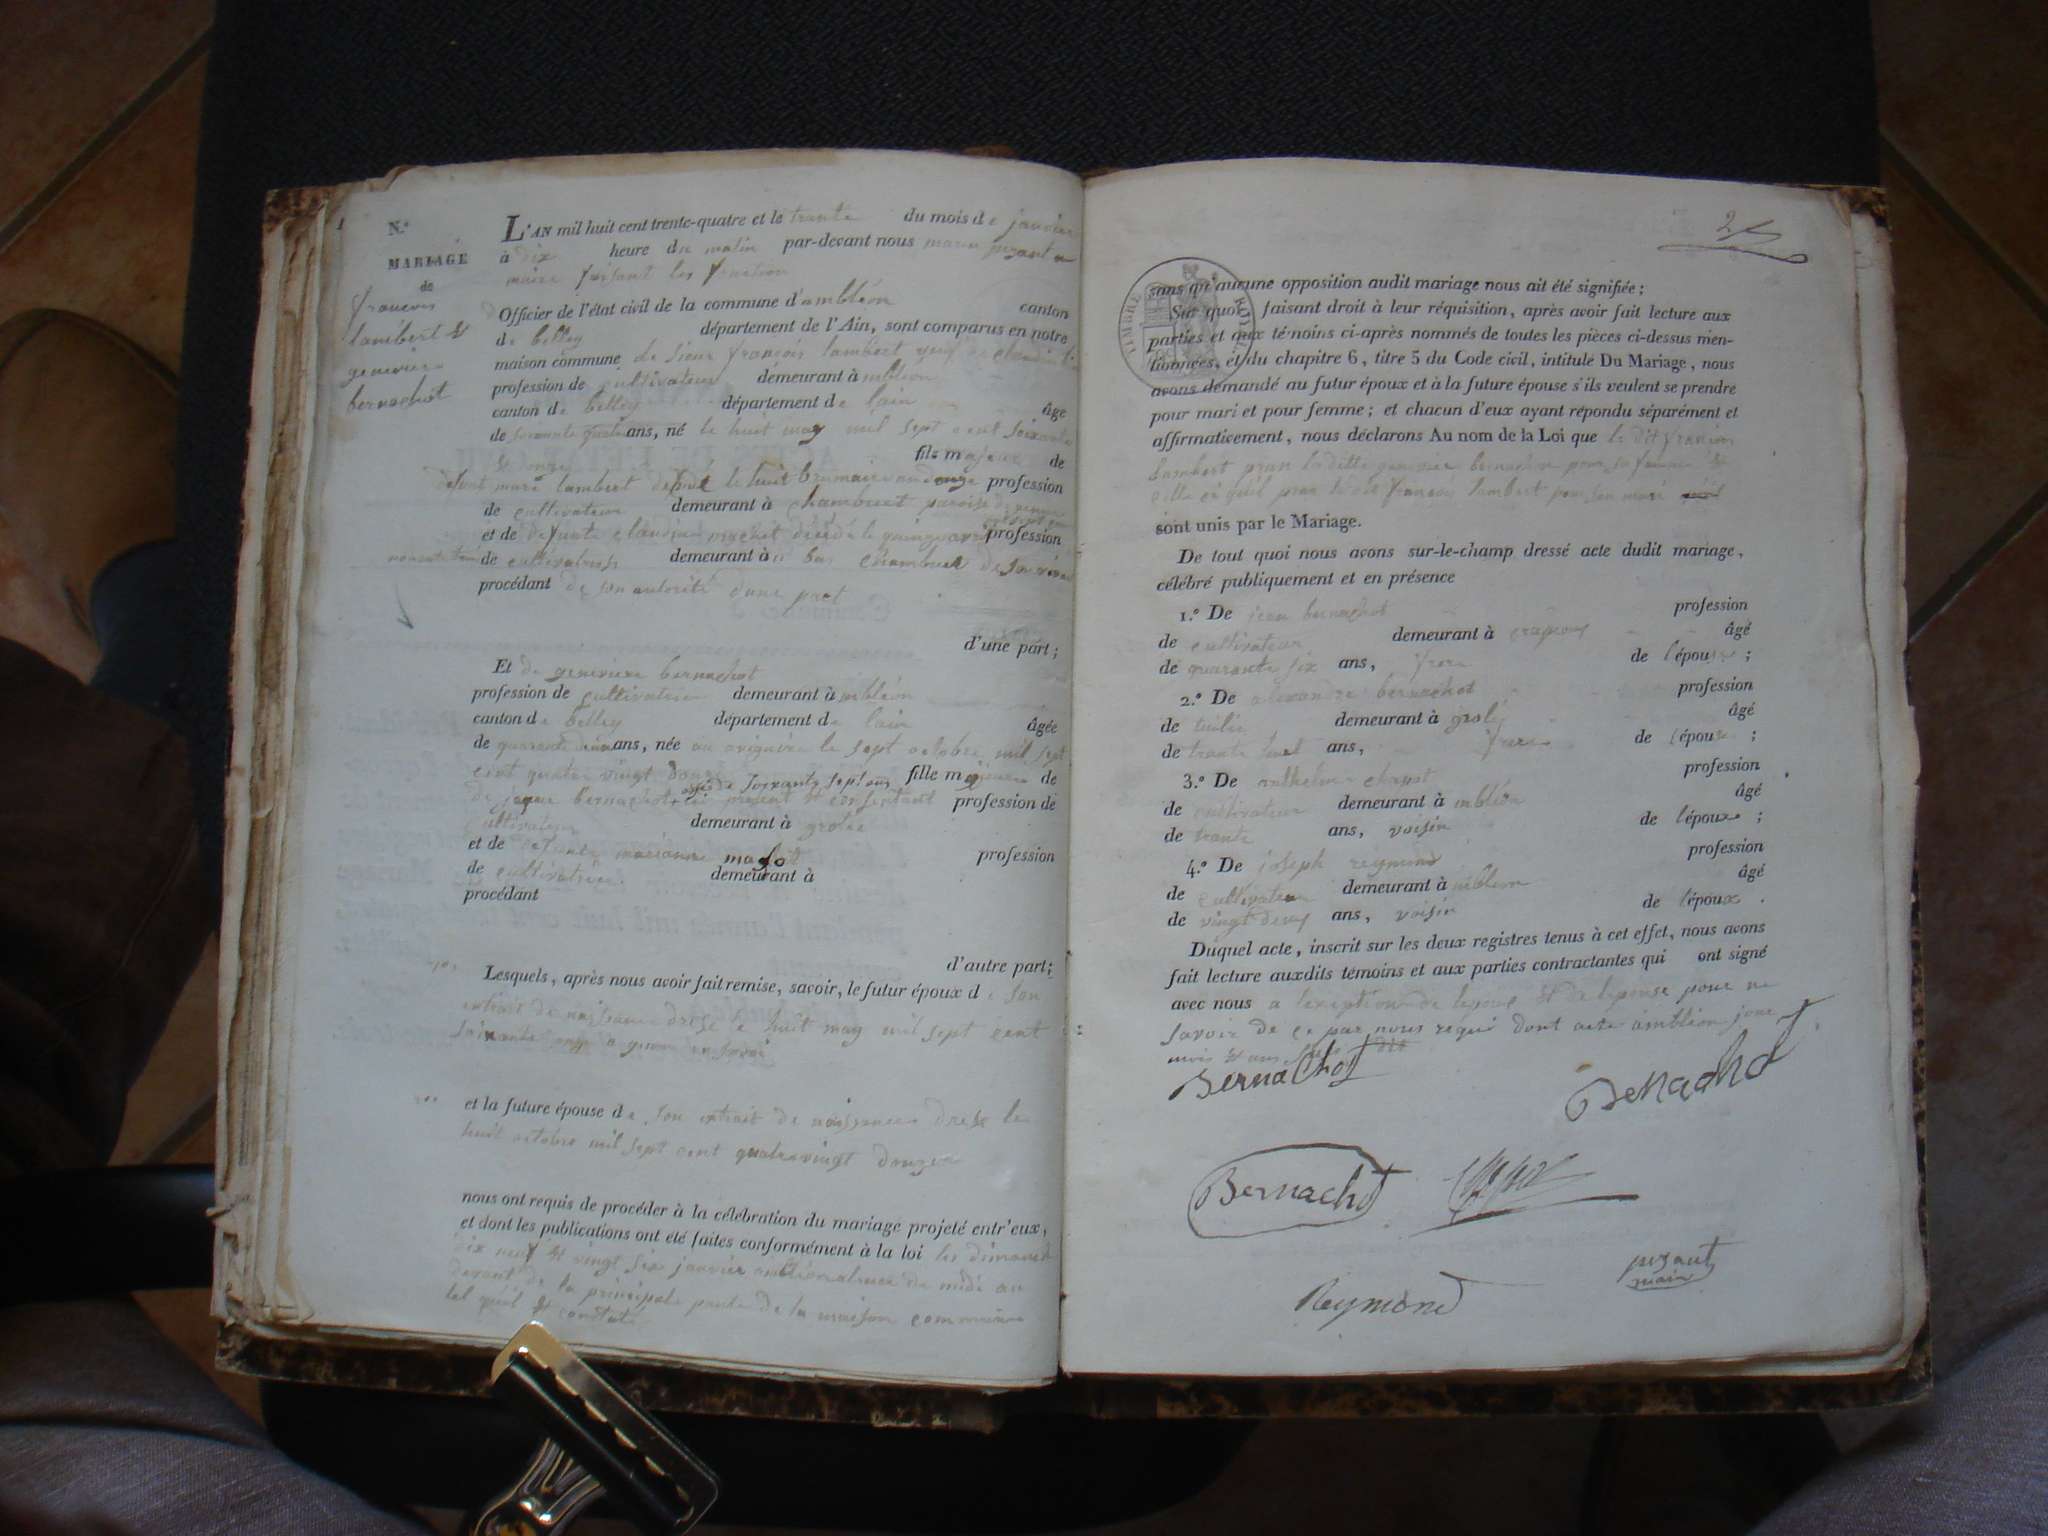 N.º
MARIAGE
de
francois
lambert et
genevieve
bernachot
L'AN mil huit cent trente-quatre et le trante du mois de janvier
à dix heure du matin par-devant nous pezant
maire faisant les fonction
Officier de l'état civil de la commune d'ambléon canton
de belley département de l'Ain, sont comparus en notre
maison commune le sieur françois lambert veuf de
profession de cultivateur demeurant à ambléon
canton de belley département de lain âgé
de soixante ans, né le huit may mil sept cent soixante
et onze fils majeur de
défunt lambert décédé le huit brumaire an onze profession
de cultivateur demeurant à chambuet paroise de
et de defunte claudine décédé le quinze profession
de cultivatrice demeurant à chambuet de son vivant
procédant de son autorité dune part
d'une part;
Et de genevieve bernachot
profession de cultivatrice demeurant à ambléon
canton de belley département de lain âgée
de quarante ans, née le sept octobre mil sept
cent quatre vingt douze fille majeure de
agé de soixante sept ans
de bernachot ici présent et consentant profession de
cultivateur demeurant à grolée
et de defunte marianne profession
de cultivatrice demeurant à
procédant
d'autre part;
Lesquels, après nous avoir fait remise, savoir, le futur époux de son
extrait de naissance dressé le huit may mil sept cent
soixante onze
et la future épouse de son extrait de naissance dressé le
huit octobre mil sept cent quatrevingt douze
nous ont requis de procéder à la célébration du mariage projeté entr'eux,
et dont les publications ont été faites conformément à la loi les dimanche
dix neuf et vingt six janvier à l'heure de midi au
devant de la principale porte de la maison commune
tel qu'il est constaté
2
TIMBRE ROYAL
sans qu'aucune opposition audit mariage nous ait été signifiée;
Sur quoi faisant droit à leur réquisition, après avoir fait lecture aux
parties et aux témoins ci-après nommés de toutes les pièces ci-dessus men-
tionnées, et du chapitre 6, titre 5 du Code civil, intitulé Du Mariage, nous
avons demandé au futur époux et à la future épouse s'ils veulent se prendre
pour mari et pour femme; et chacun d'eux ayant répondu séparément et
affirmativement, nous déclarons Au nom de la Loi que le dit françois
lambert pran laditte genevieve bernachot pour sa femme et
celle ci quil pran le dit françois lambert pour son mari
sont unis par le Mariage.
De tout quoi nous avons sur-le-champ dressé acte dudit mariage,
célébré publiquement et en présence
1.º De jean bernachot profession
de cultivateur demeurant à âgé
de quarante six ans, frere de l'épouse;
2.º De alexandre bernachot profession
de tuilier demeurant à grolé âgé
de trante huit ans, frere de l'épouse;
3.º De anthelme chapot profession
de cultivateur demeurant à ambléon âgé
de trante ans, voisin de l'époux;
4.º De joseph reymond profession
de cultivateur demeurant à ambleon âgé
de vingt deux ans, voisin de l'époux.
Duquel acte, inscrit sur les deux registres tenus à cet effet, nous avons
fait lecture auxdits témoins et aux parties contractantes qui ont signé
avec nous a lexeption de lepoux et de lepouse pour ne
savoir de ce par nous requi dont acte ambleon jour
mois et ans dit
Bernachot
Benachot
Bernachot
chapot
pezant
maire
Reymond